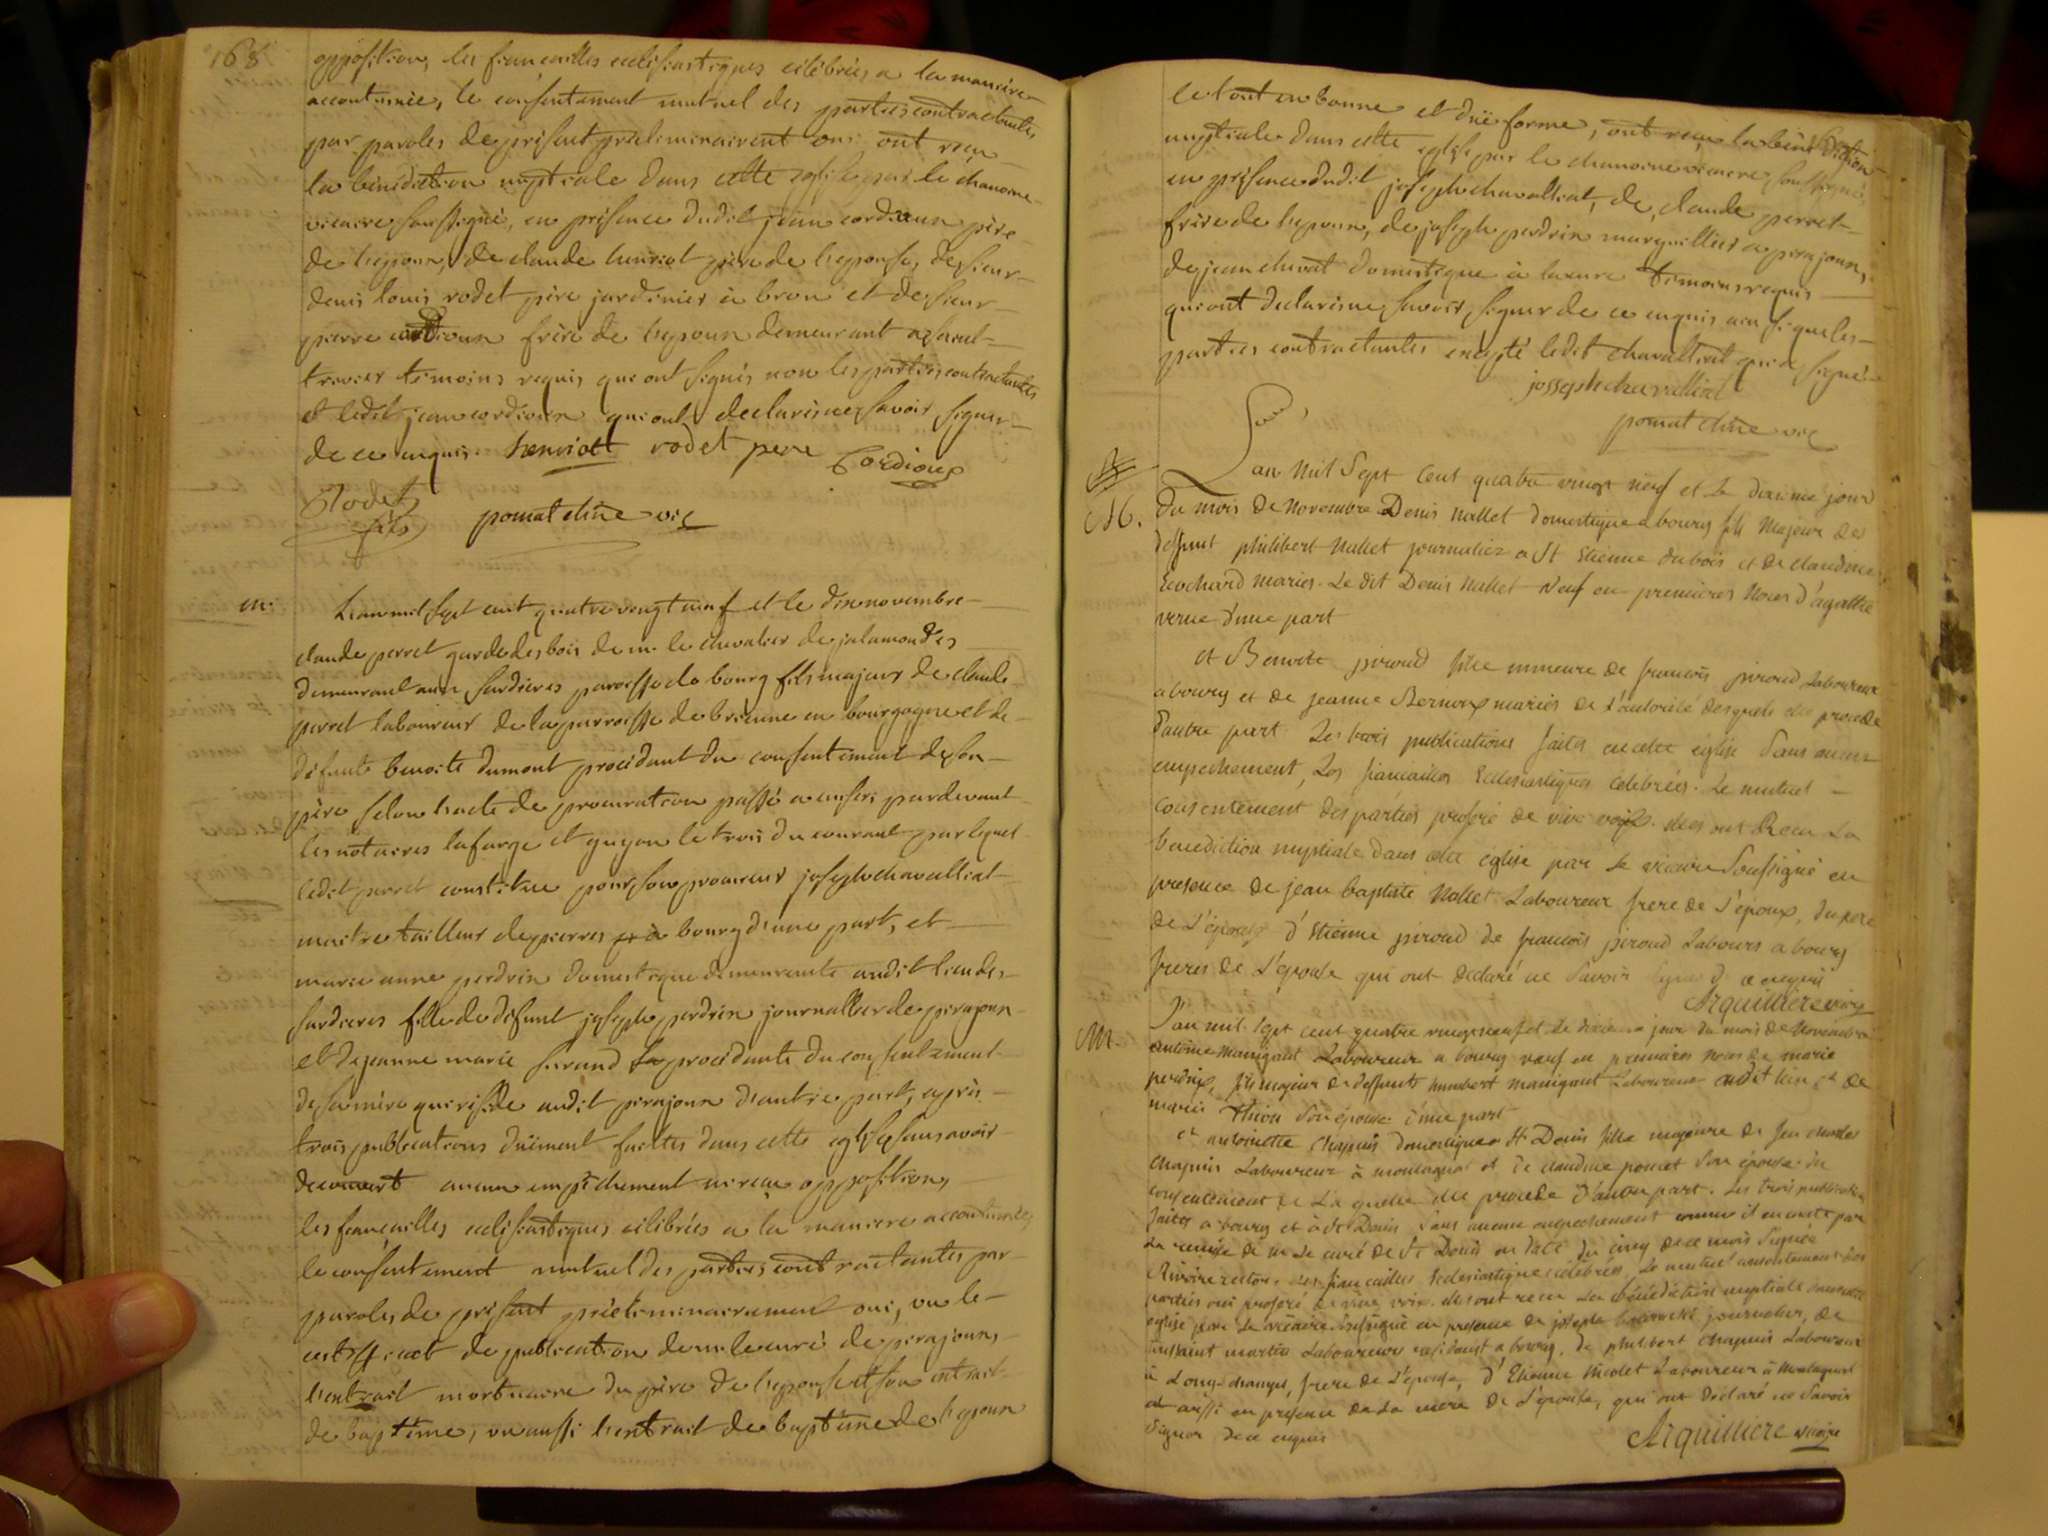 168
opposition, les fiancailles eclésiastiques célébrées a la maniere
accoutumée, le consentement mutuel des parties contractantes
par paroles de présent préliminairement oui ont reçu
la bénédiction nuptiale dans cette église par le chanoine
vicaire soussigné, en présence dudit jean cordioux père
de l'epoux, de claude henriot père de l'epouse, de sieur
denis louis rodet père jardinier à brou et de sieur
pierre cordioux frère de l'epoux demeurant a
témoins requis qui ont signés non les parties contractantes
et ledit jean cordioux qui ont declaré ne savoir signer
de ce enquis. henriott rodet pere Cordioux
Rodet
fils pomat chne vic
m. L'an mil sept cent quatre vingt neuf et le dix novembre
claude perret garde des bois de m. le chevalier de jalamondes
demeurant aux sardieres paroisse de bourg fils majeur de claude
perret laboureur de la parroisse de brienne en bourgogne et de
défunte benoite dumont procédant du consentement de son
père selon l'acte de procuration passé a cuiseri pardevant
les notaires lafarge et guyon le trois du courant par lequel
ledit perret constitue pour son procureur joseph chavalliat
maitre tailleur de pierres à bourg d'une part, et
marie anne perdrix domestique demeurante audit lieu des
sardieres fille de défunt joseph perdrix journallier de perajoux
et de jeanne marie procédante du consentement
de sa mère qui réside audit perajoux d'autre part, après
trois publications düement faittes dans cette eglise sans avoir
decouvert aucun empêchement ni reçu opposition,
les fiancailles eclésiastiques célébrées a la maniere accoutumée,
le consentement mutuel des parties contractantes par
paroles de présent préliminairement oui, vu le
certificat de publication de m. le curé de perajoux,
l'extrait mortuaire du père de l'epouse et son extrait
de baptême, vu aussi l'extrait de baptême de l'epoux
le tout en bonne et düe forme, ont reçu la bénédiction
nuptiale dans cette eglise par le chanoine vicaire soussigné,
en présence dudit joseph chavalliat, de claude perret
frère de l'epoux, de joseph perdrix marguillier a perajoux,
de jean chivat domestique à la cure témoins requis
qui ont declaré ne savoir signer de ce enquis ainsi que les
parties contractantes excepté ledit chavalliat qui a signé
josseph chavalliat
pomat chne vic
M. L'an mil sept cent quatre vingt neuf et le dixieme jour
du mois de novembre Denis Nallet domestique a bourg fils majeur de
deffunt philibert Nallet journalier a St Etienne dubois et de claudine
Ecochard mariés. Le dit Denis Nallet veuf en premieres noces d'agathe
verne d'une part
et Benoite piroud fille mineure de francois piroud Laboureur
a bourg et de jeanne Bernoux mariés de l'autorité desquels elle procede
d'autre part. Les trois publications faites en cette église sans aucun
empechement, Les fiancailles Ecclesiastiques celebrées. Le mutuel
consentement des parties proferé de vive voix. elles ont Recu La
benediction nuptiale dans cette eglise par le vicaire soussigné en
presence de jean baptiste Nallet Laboureur frere de l'époux, du pere
de L'épouse d'Etienne piroud de francois piroud Labours a bourg
freres de L'épouse qui ont declaré ne savoir signer de ce enquis
Arquilliere vicaire
M. L'an mil sept cent quatre vingt neuf et le dixieme jour du mois de Novembre
antoine manigant Laboureur a bourg veuf en premieres noces de marie
perdrix, fils majeur de deffunts humbert manigant Laboureur audit lieu et de
marie Thion son épouse d'une part
et antoinette Chapuis domestique a St Denis fille majeure de feu charles
chapuis Laboureur à montagnat et de claudine poncet son épouse du
consentement de La quelle elle procede d'autre part. Les trois publications
faites a bourg et à St Denis sans aucun empechement comme il en conste par
La remise de m. Le curé de St Denis en date du cinq de ce mois signée
Rivoire rector. Les fiancailles Ecclesiastiques célébrées. Le mutuel consentement des
parties oui proferé de vive voix. elles ont recu La bénédiction nuptiale dans cette
église par Le vicaire soussigné en presence de joseph journalier, de
toussaint martin Laboureur residant a bourg, de philibert Chapuis Laboureur
à Longchamps, frere de l'épouse, d'Etienne Nicolet Laboureur à Montagnat
et aussi en presence de la mere de L'épouse, qui ont declaré ne savoir
signer de ce enquis
Arquilliere vicaire